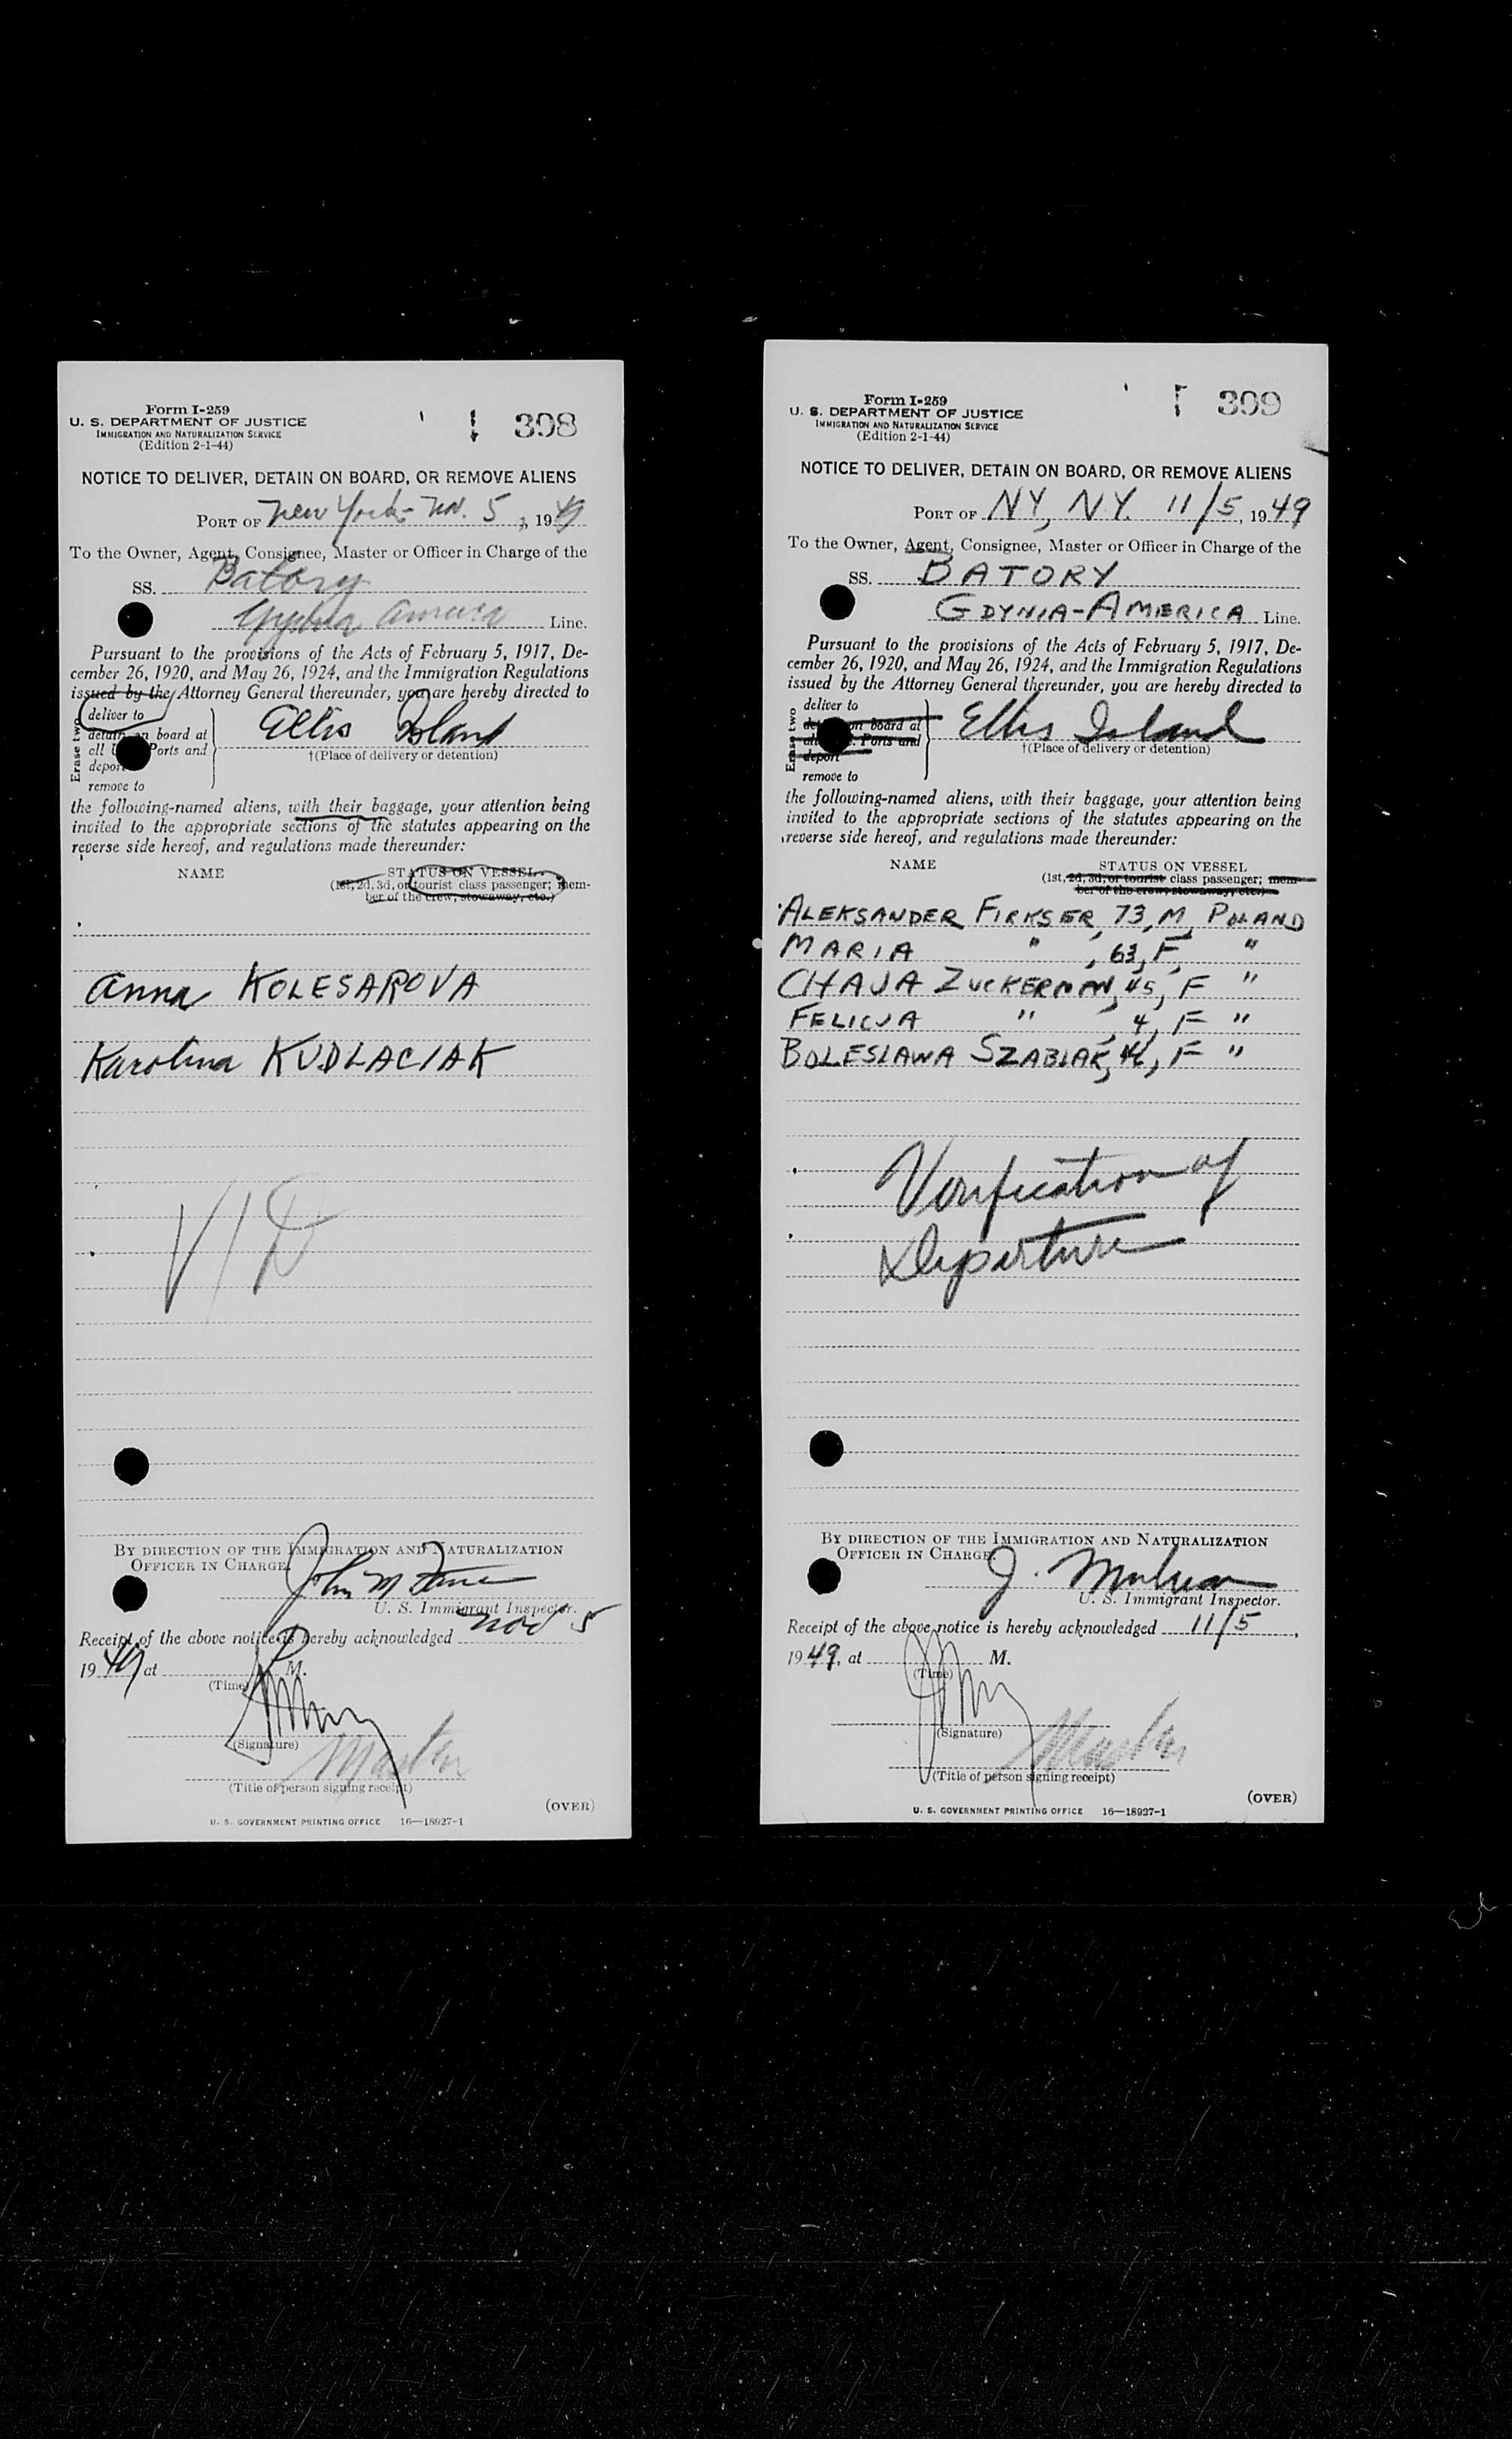 Form I-259
U. S. DEPARTMENT OF JUSTICE
IMMIGRATION AND NATURALIZATION SERVICE
(Edition 2-1-44)
308
NOTICE TO DELIVER, DETAIN ON BOARD, OR REMOVE ALIENS
PORT OF New York - Nov. 5, 1949
To the Owner, Agent, Consignee, Master or Officer in Charge of the
SS. Batory
Gydnia America Line.
Pursuant to the provisions of the Acts of February 5, 1917, De-
cember 26, 1920, and May 26, 1924, and the Immigration Regulations
issued by the Attorney General thereunder, you are hereby directed to
Erase two
deliver to
detain on board at
all Ports and
deport
remove to
Ellis Island
†(Place of delivery or detention)
the following-named aliens, with their baggage, your attention being
invited to the appropriate sections of the statutes appearing on the
reverse side hereof, and regulations made thereunder:
NAME STATUS ON VESSEL
(1st, 2d, 3d, or tourist class passenger; mem-
ber of the crew; stowaway, etc.)
Anna KOLESAROVA
Karolina KUDLACIAK
V/D
BY DIRECTION OF THE IMMIGRATION AND NATURALIZATION
OFFICER IN CHARGE.
John M
U. S. Immigrant Inspector.
Receipt of the above notice is hereby acknowledged Nov 5
1949, at M.
(Time)
(Signature)
Master
(Title of person signing receipt)
(OVER)
U. S. GOVERNMENT PRINTING OFFICE 16—18927-1
Form I-259
U. S. DEPARTMENT OF JUSTICE
IMMIGRATION AND NATURALIZATION SERVICE
(Edition 2-1-44)
309
NOTICE TO DELIVER, DETAIN ON BOARD, OR REMOVE ALIENS
PORT OF NY, NY. 11/5, 1949
To the Owner, Agent, Consignee, Master or Officer in Charge of the
SS. BATORY
GDYNIA-AMERICA Line.
Pursuant to the provisions of the Acts of February 5, 1917, De-
cember 26, 1920, and May 26, 1924, and the Immigration Regulations
issued by the Attorney General thereunder, you are hereby directed to
Erase two
deliver to
on board at
Ports and
deport
remove to
Ellis Island
†(Place of delivery or detention)
the following-named aliens, with their baggage, your attention being
invited to the appropriate sections of the statutes appearing on the
reverse side hereof, and regulations made thereunder:
NAME STATUS ON VESSEL
(1st, 2d, 3d, or tourist class passenger; mem-
ber of the crew; stowaway, etc.)
ALEKSANDER FIRKSER, 73, M, POLAND
MARIA " , 63, F, "
CHAJA ZUCKERMAN, 45, F "
FELICJA " , 4, F "
BOLESLAWA SZABLAK, 46, F "
Verification of
Departure
BY DIRECTION OF THE IMMIGRATION AND NATURALIZATION
OFFICER IN CHARGE.
J.
U. S. Immigrant Inspector.
Receipt of the above notice is hereby acknowledged 11/5,
1949, at M.
(Time)
(Signature)
Master
(Title of person signing receipt)
(OVER)
U. S. GOVERNMENT PRINTING OFFICE 16—18927-1